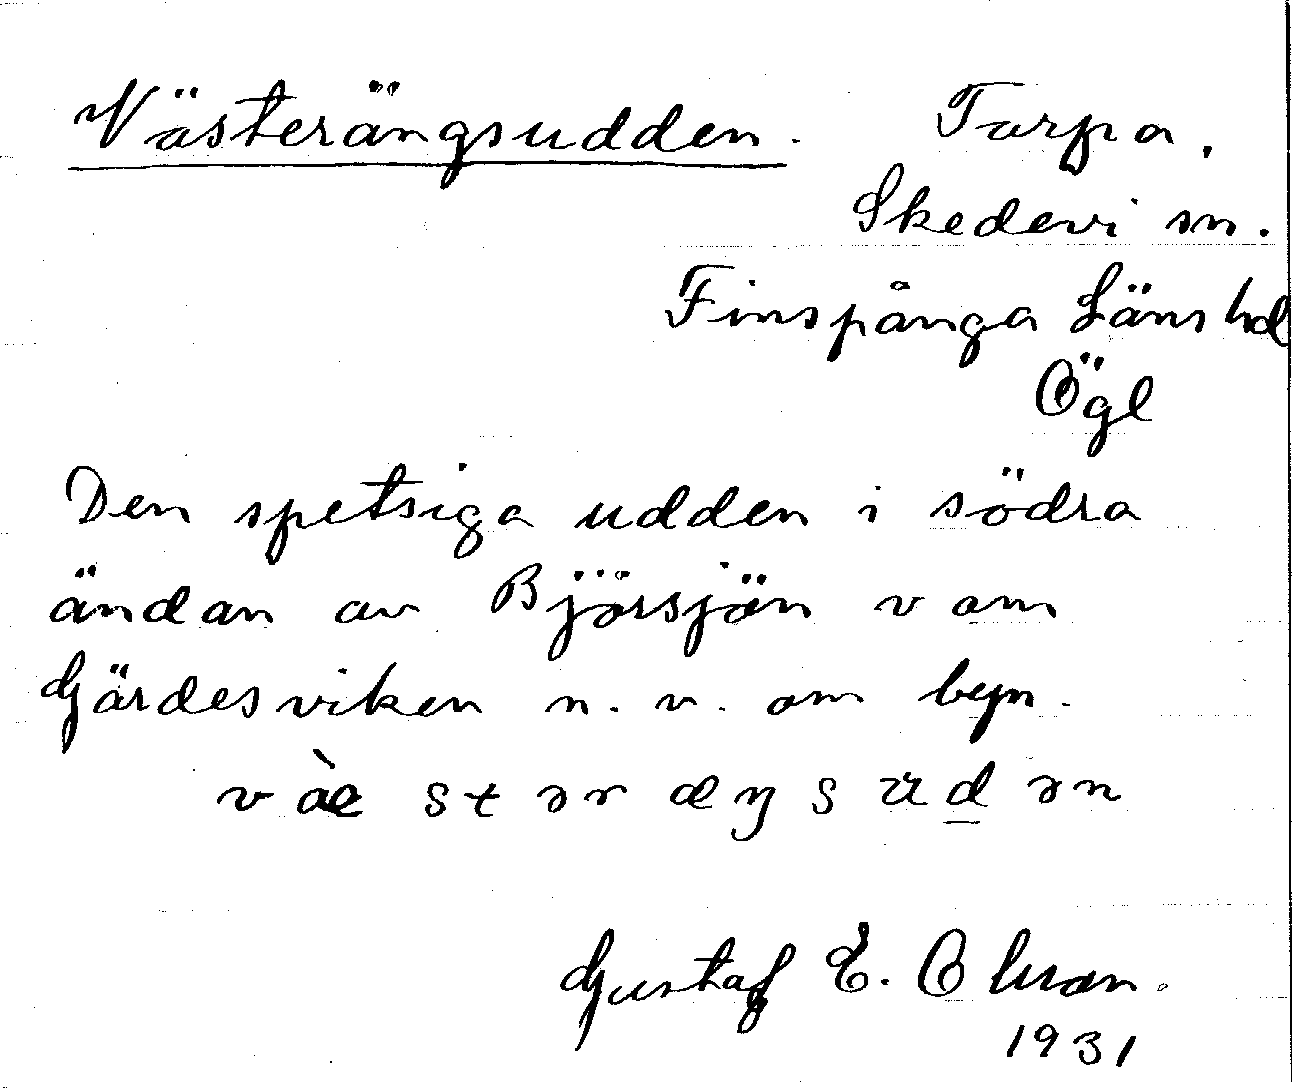 Västerängsudden. Torpa.
Skedevi sn.
Finspånga Länshd
Ögl
Den spetsiga udden i södra
ändan av Björsjön v om
Gärdesviken n. v. om byn.
Gustaf E. Olson.
1931